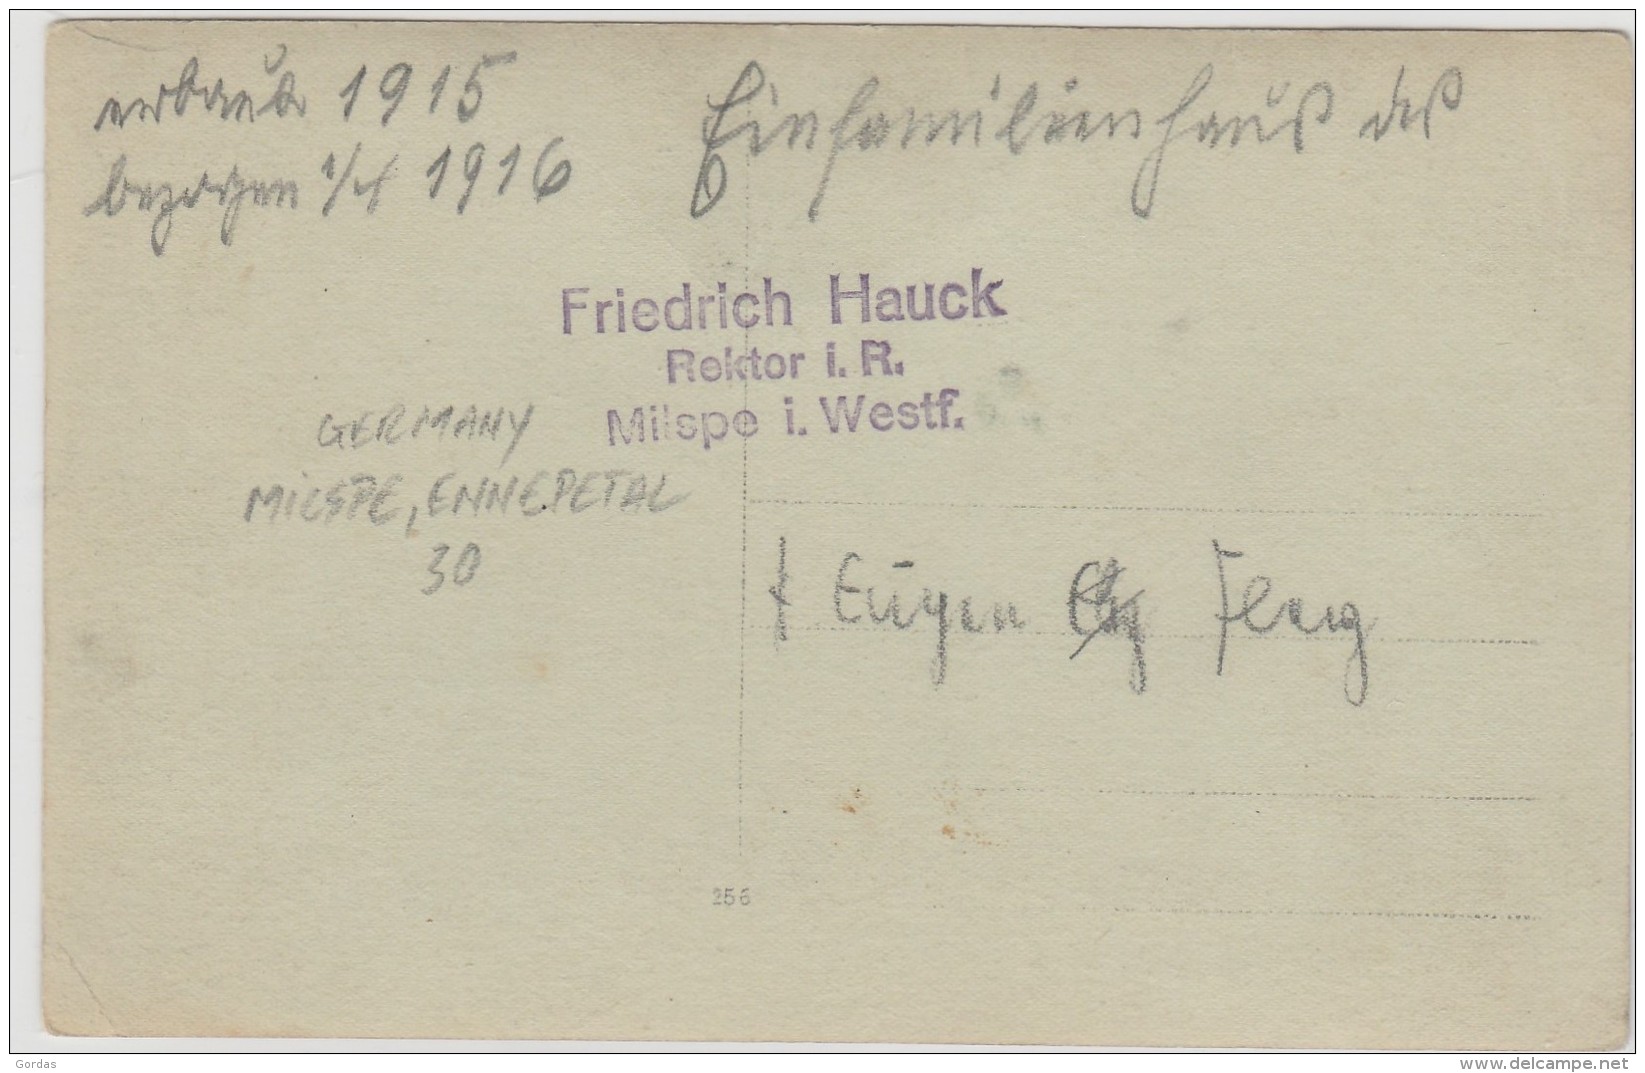 erbaut 1915
bezogen 1/4 1916
Einfamilienhaus des
Friedrich Hauck
Rektor i. R.
Milspe i. Westf.
GERMANY
MILSPE, ENNEPETAL
30
Eugen
256
Gordas
www.delcampe.net